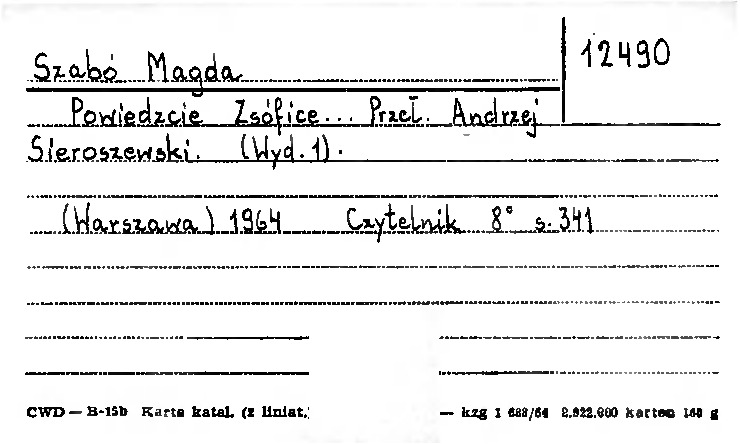 12490
Szabó Magda
Powiedzcie Zsófice... Przeł. Andrzej
Sieroszewski. (Wyd. 1).
(Warszawa) 1964 Czytelnik 8° s. 341
CWD — B-15b Karta katal. (z liniat.) — kzg 1 688/64 2.922.000 kartek 160 g